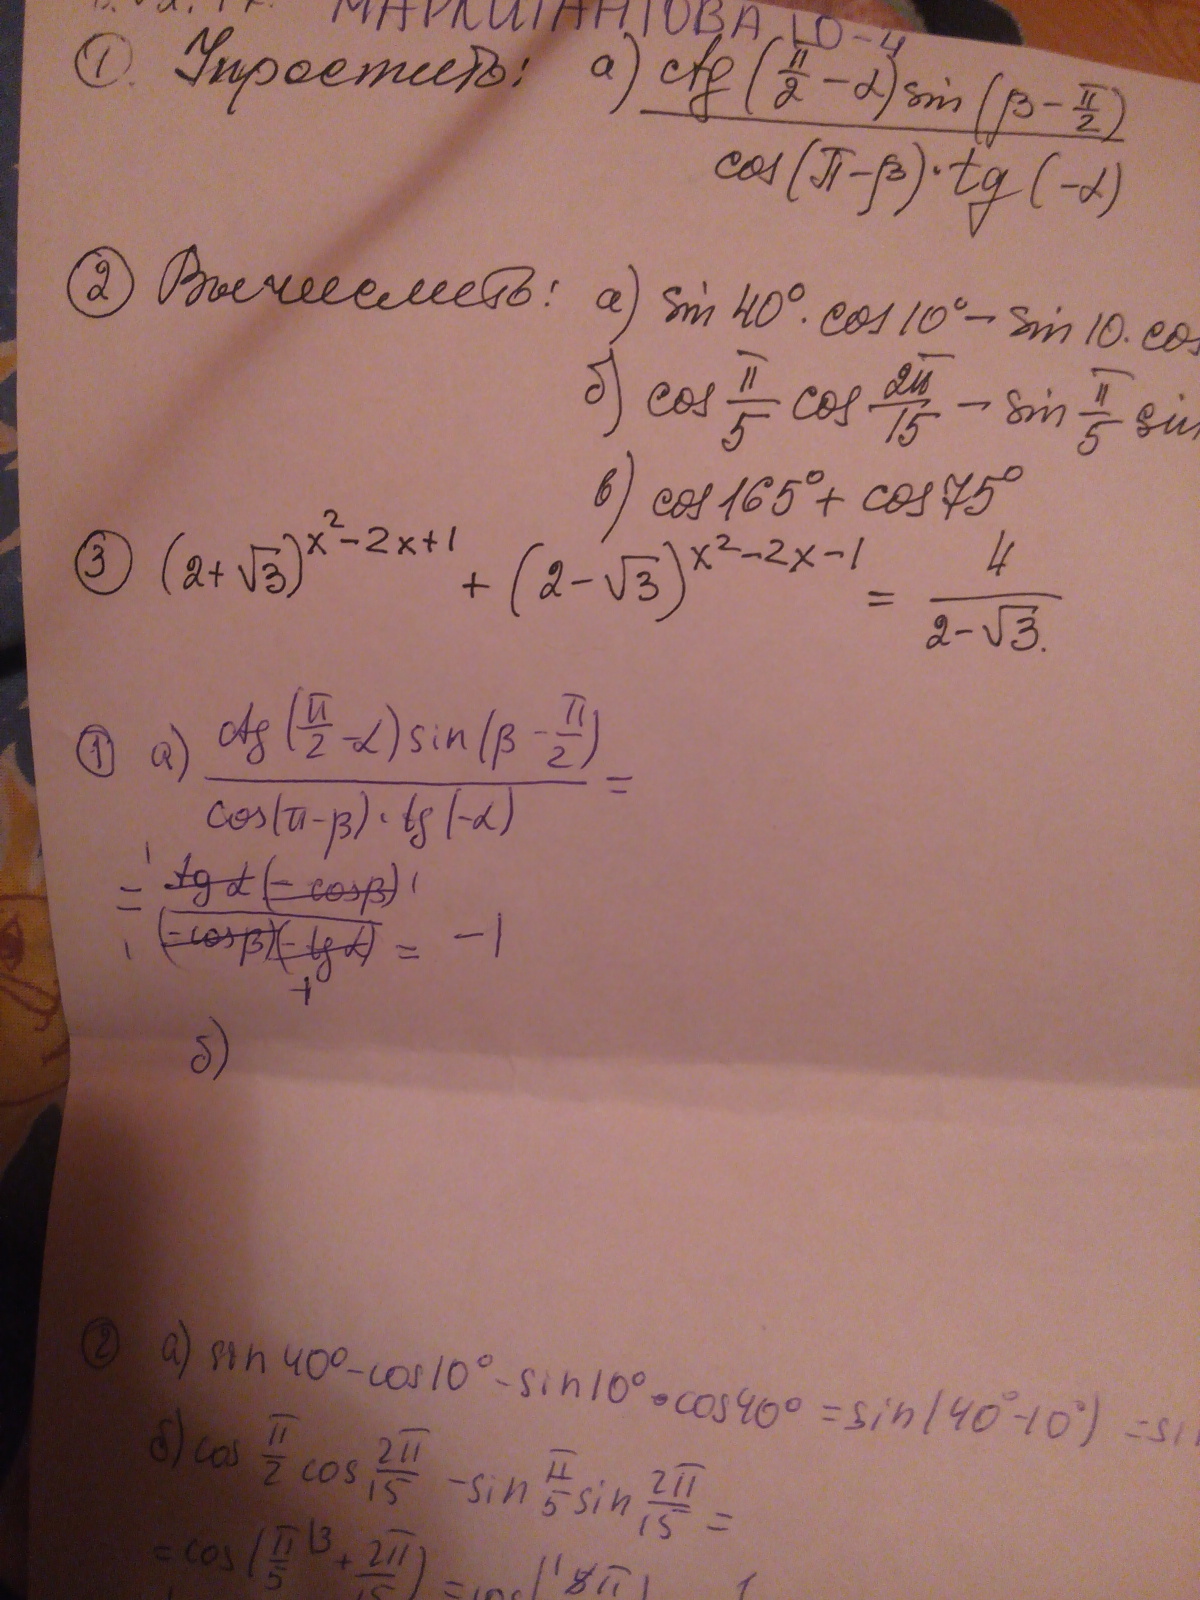 МАРКИТАНТОВА 10-4
① Упростить: а) ctg(π/2 - α) sin(β - π/2) / cos(π-β)·tg(-α)
② Вычислить: а) sin 40°·cos 10° - sin 10·cos
б) cos π/5 cos 2π/15 - sin π/5 sin
в) cos 165° + cos 75°
③ (2+√3)^(x²-2x+1) + (2-√3)^(x²-2x-1) = 4/(2-√3).
① а) ctg(π/2 - α) sin(β - π/2) / cos(π-β)·tg(-α) =
= tg α (-cos β) / (-cos β)(-tg α) = -1
б)
② а) sin 40° - cos 10° - sin 10° · cos 40° = sin(40°-10°) = sin
б) cos π/2 cos 2π/15 - sin π/5 sin 2π/15 =
= cos(π/5 + 2π/15) =